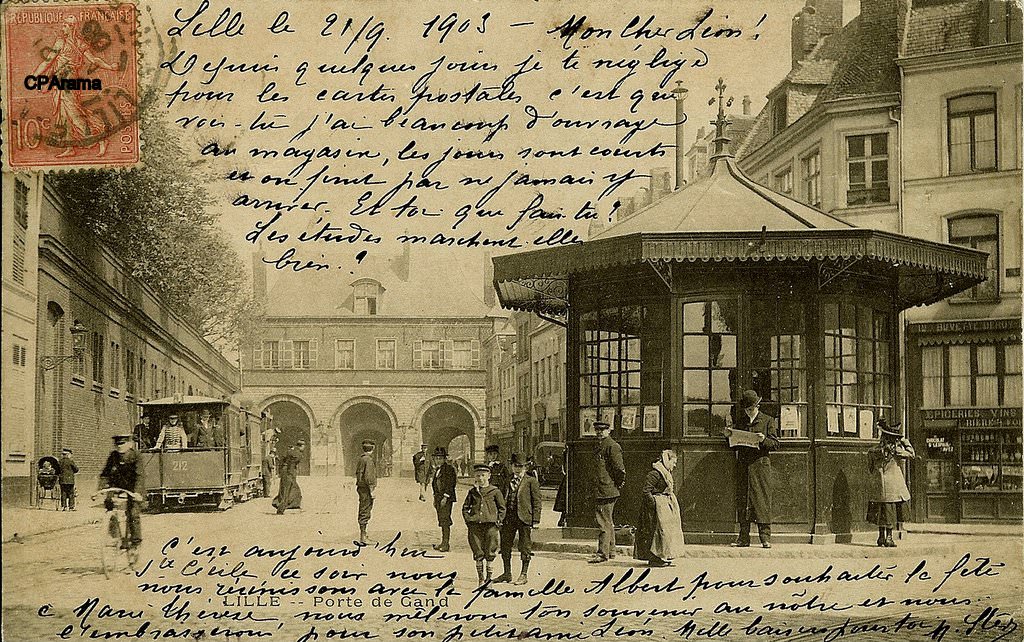 RÉPUBLIQUE FRANÇAISE
CPArama
10c
POSTES
Lille le 21/9. 1903 - Mon Cher Léon!
Depuis quelques jours je te néglige
pour les cartes postales c'est que
vois-tu j'ai beaucoup d'ouvrage
au magasin, les jours sont courts
et on finit par ne jamais y
arriver. Et toi que fais tu?
Les études marchent elles
bien?
BUVETTE
EPICERIES VINS
CHOCOLAT
212
C'est aujourd'hui
Ste Cécile, ce soir nous
nous réunissons avec la famille Albert pour souhaiter la fête
LILLE -- Porte de Gand
à Marie Thérèse, nous mêlerons ton souvenir au nôtre et nous
l'embrasserons pour son petit ami Léon. Mille baisers pour toi